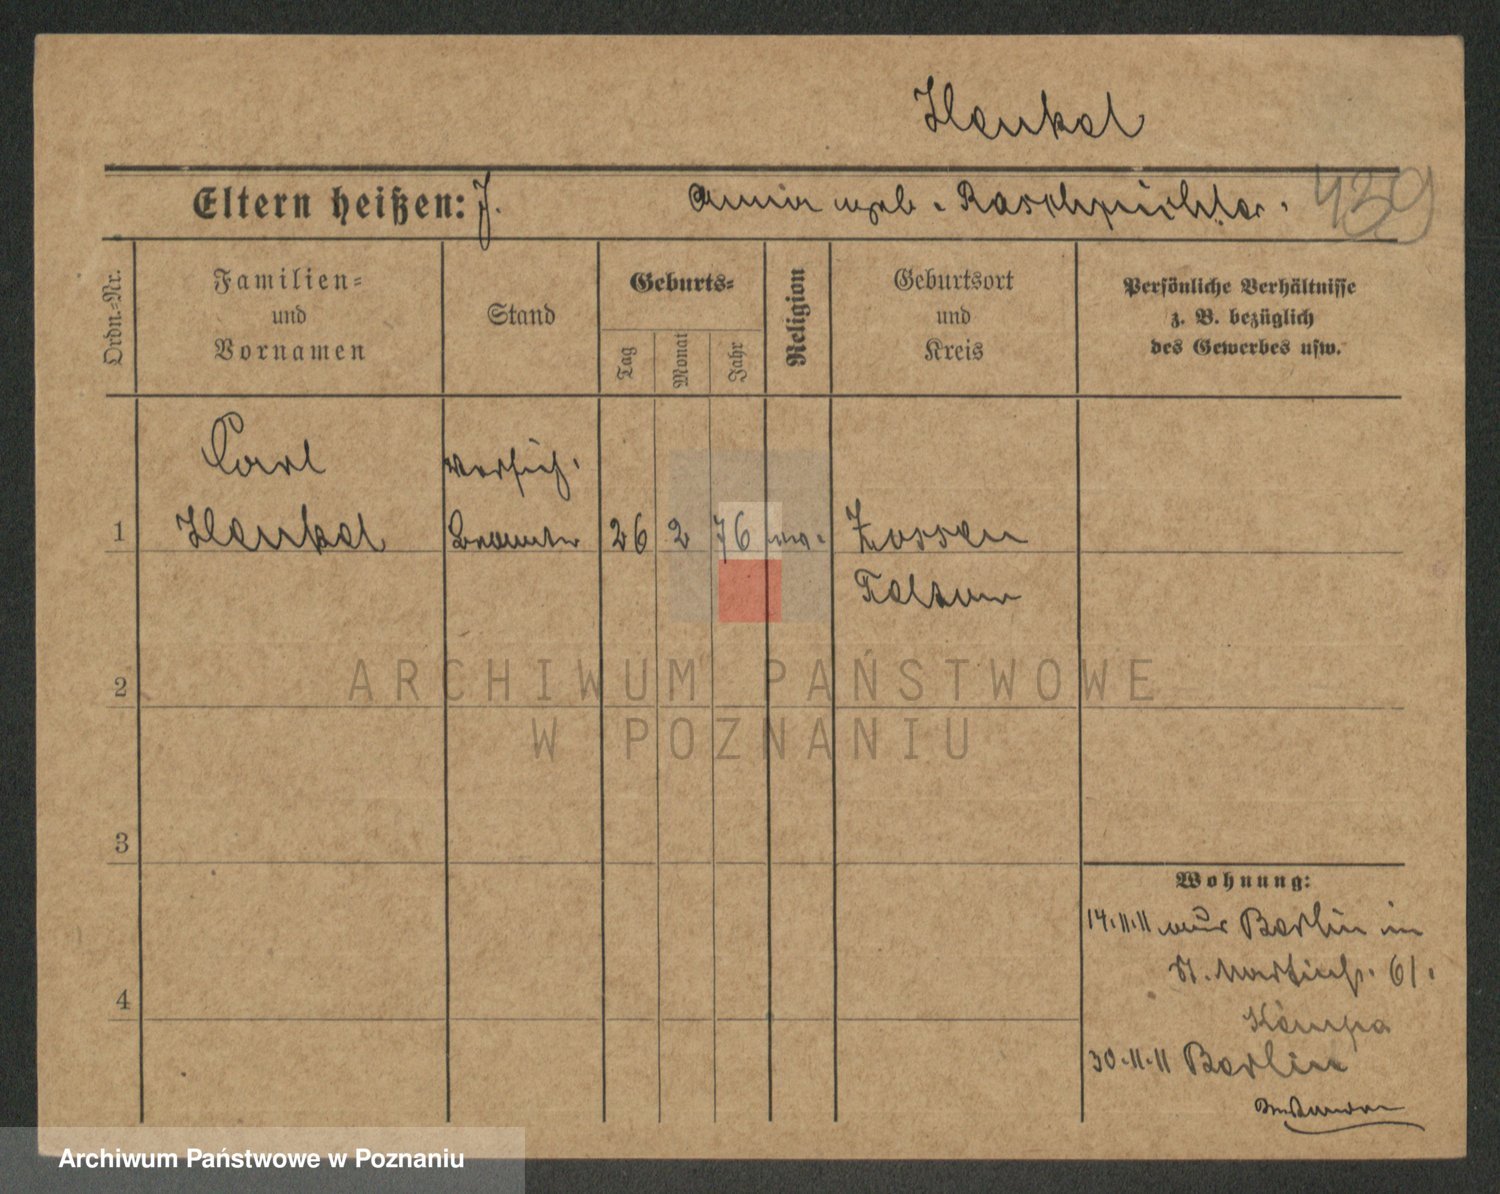 Henkel
Eltern heißen: J. Anna geb. 439
Ordn.-Nr.
Familien-
und
Vornamen
Stand
Geburts-
Tag
Monat
Jahr
Religion
Geburtsort
und
Kreis
Persönliche Verhältnisse
z. B. bezüglich
des Gewerbes usw.
Carl
Versich.
1 Henkel Beamter 26 2 76 ev. Zossen
Teltow
2
ARCHIWUM PAŃSTWOWE
W POZNANIU
3
4
Wohnung:
14.11.11 aus Berlin in
St. Martinstr. 61.
Kempa
30.11.11 Berlin
Archiwum Państwowe w Poznaniu